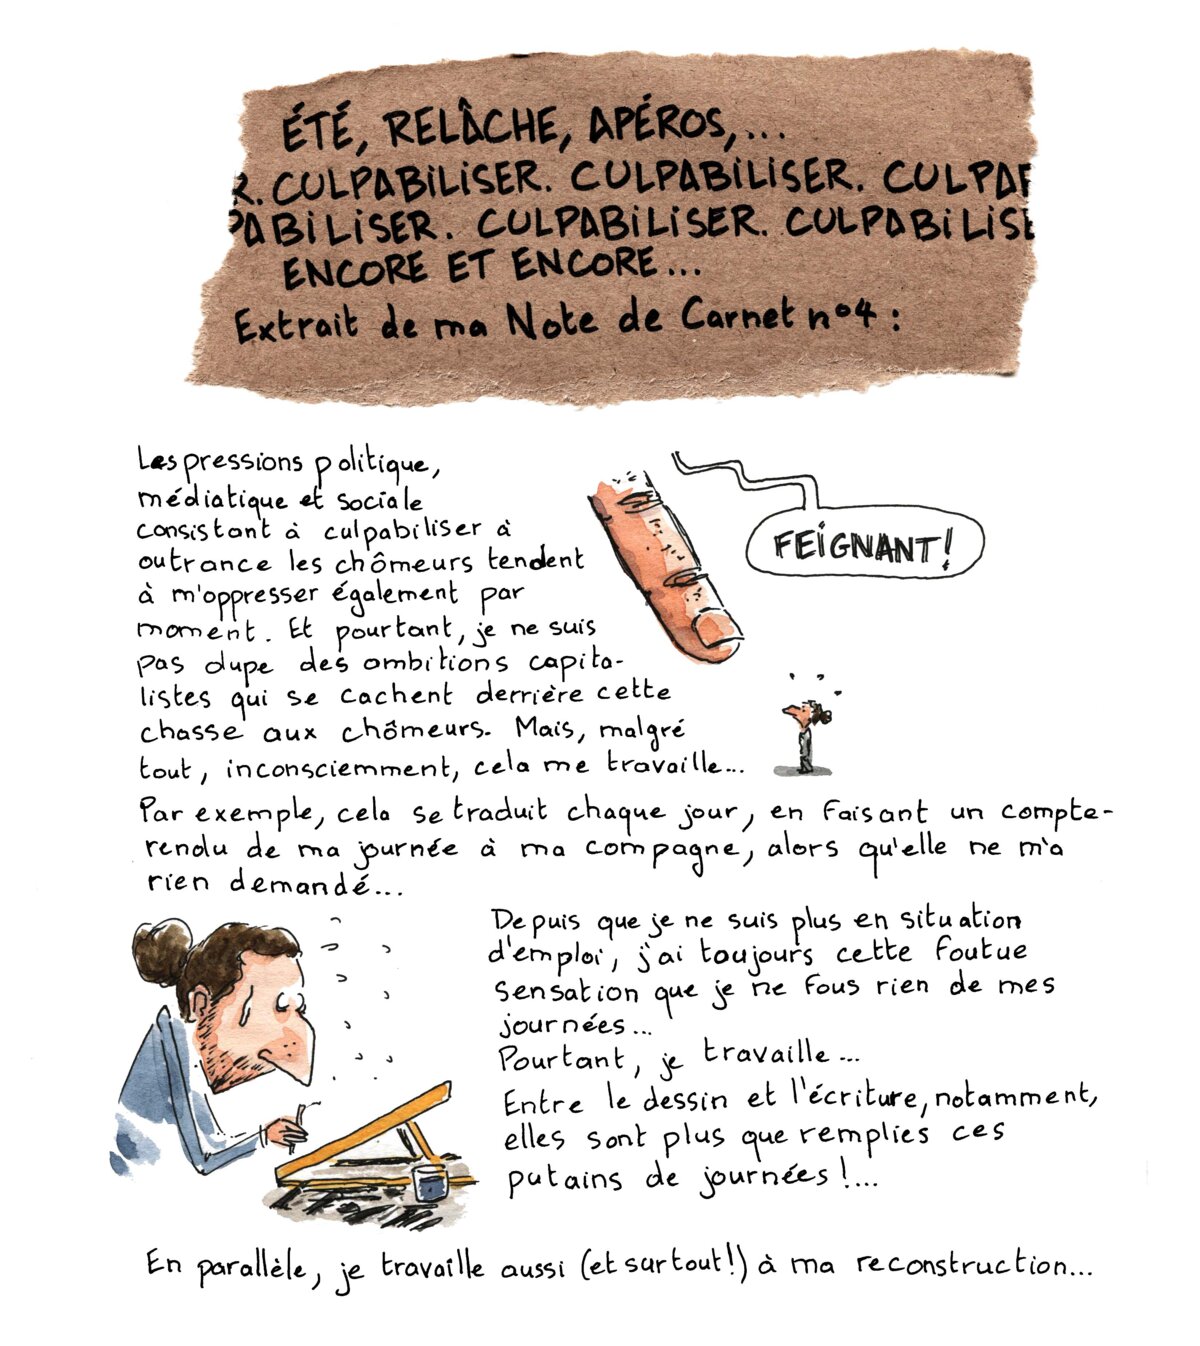 ÉTÉ, RELÂCHE, APÉROS,...
R. CULPABILISER. CULPABILISER. CULPAB
PABILISER. CULPABILISER. CULPABILISE
ENCORE ET ENCORE...
Extrait de ma Note de Carnet n°4 :
Les pressions politique,
médiatique et sociale
consistant à culpabiliser à
outrance les chômeurs tendent
à m'oppresser également par
moment. Et pourtant, je ne suis
pas dupe des ambitions capita-
listes qui se cachent derrière cette
chasse aux chômeurs. Mais, malgré
tout, inconsciemment, cela me travaille...
FEIGNANT!
Par exemple, cela se traduit chaque jour, en faisant un compte-
rendu de ma journée à ma compagne, alors qu'elle ne m'a
rien demandé...
Depuis que je ne suis plus en situation
d'emploi, j'ai toujours cette foutue
sensation que je ne fous rien de mes
journées...
Pourtant, je travaille...
Entre le dessin et l'écriture, notamment,
elles sont plus que remplies ces
putains de journées !...
En parallèle, je travaille aussi (et surtout!) à ma reconstruction...